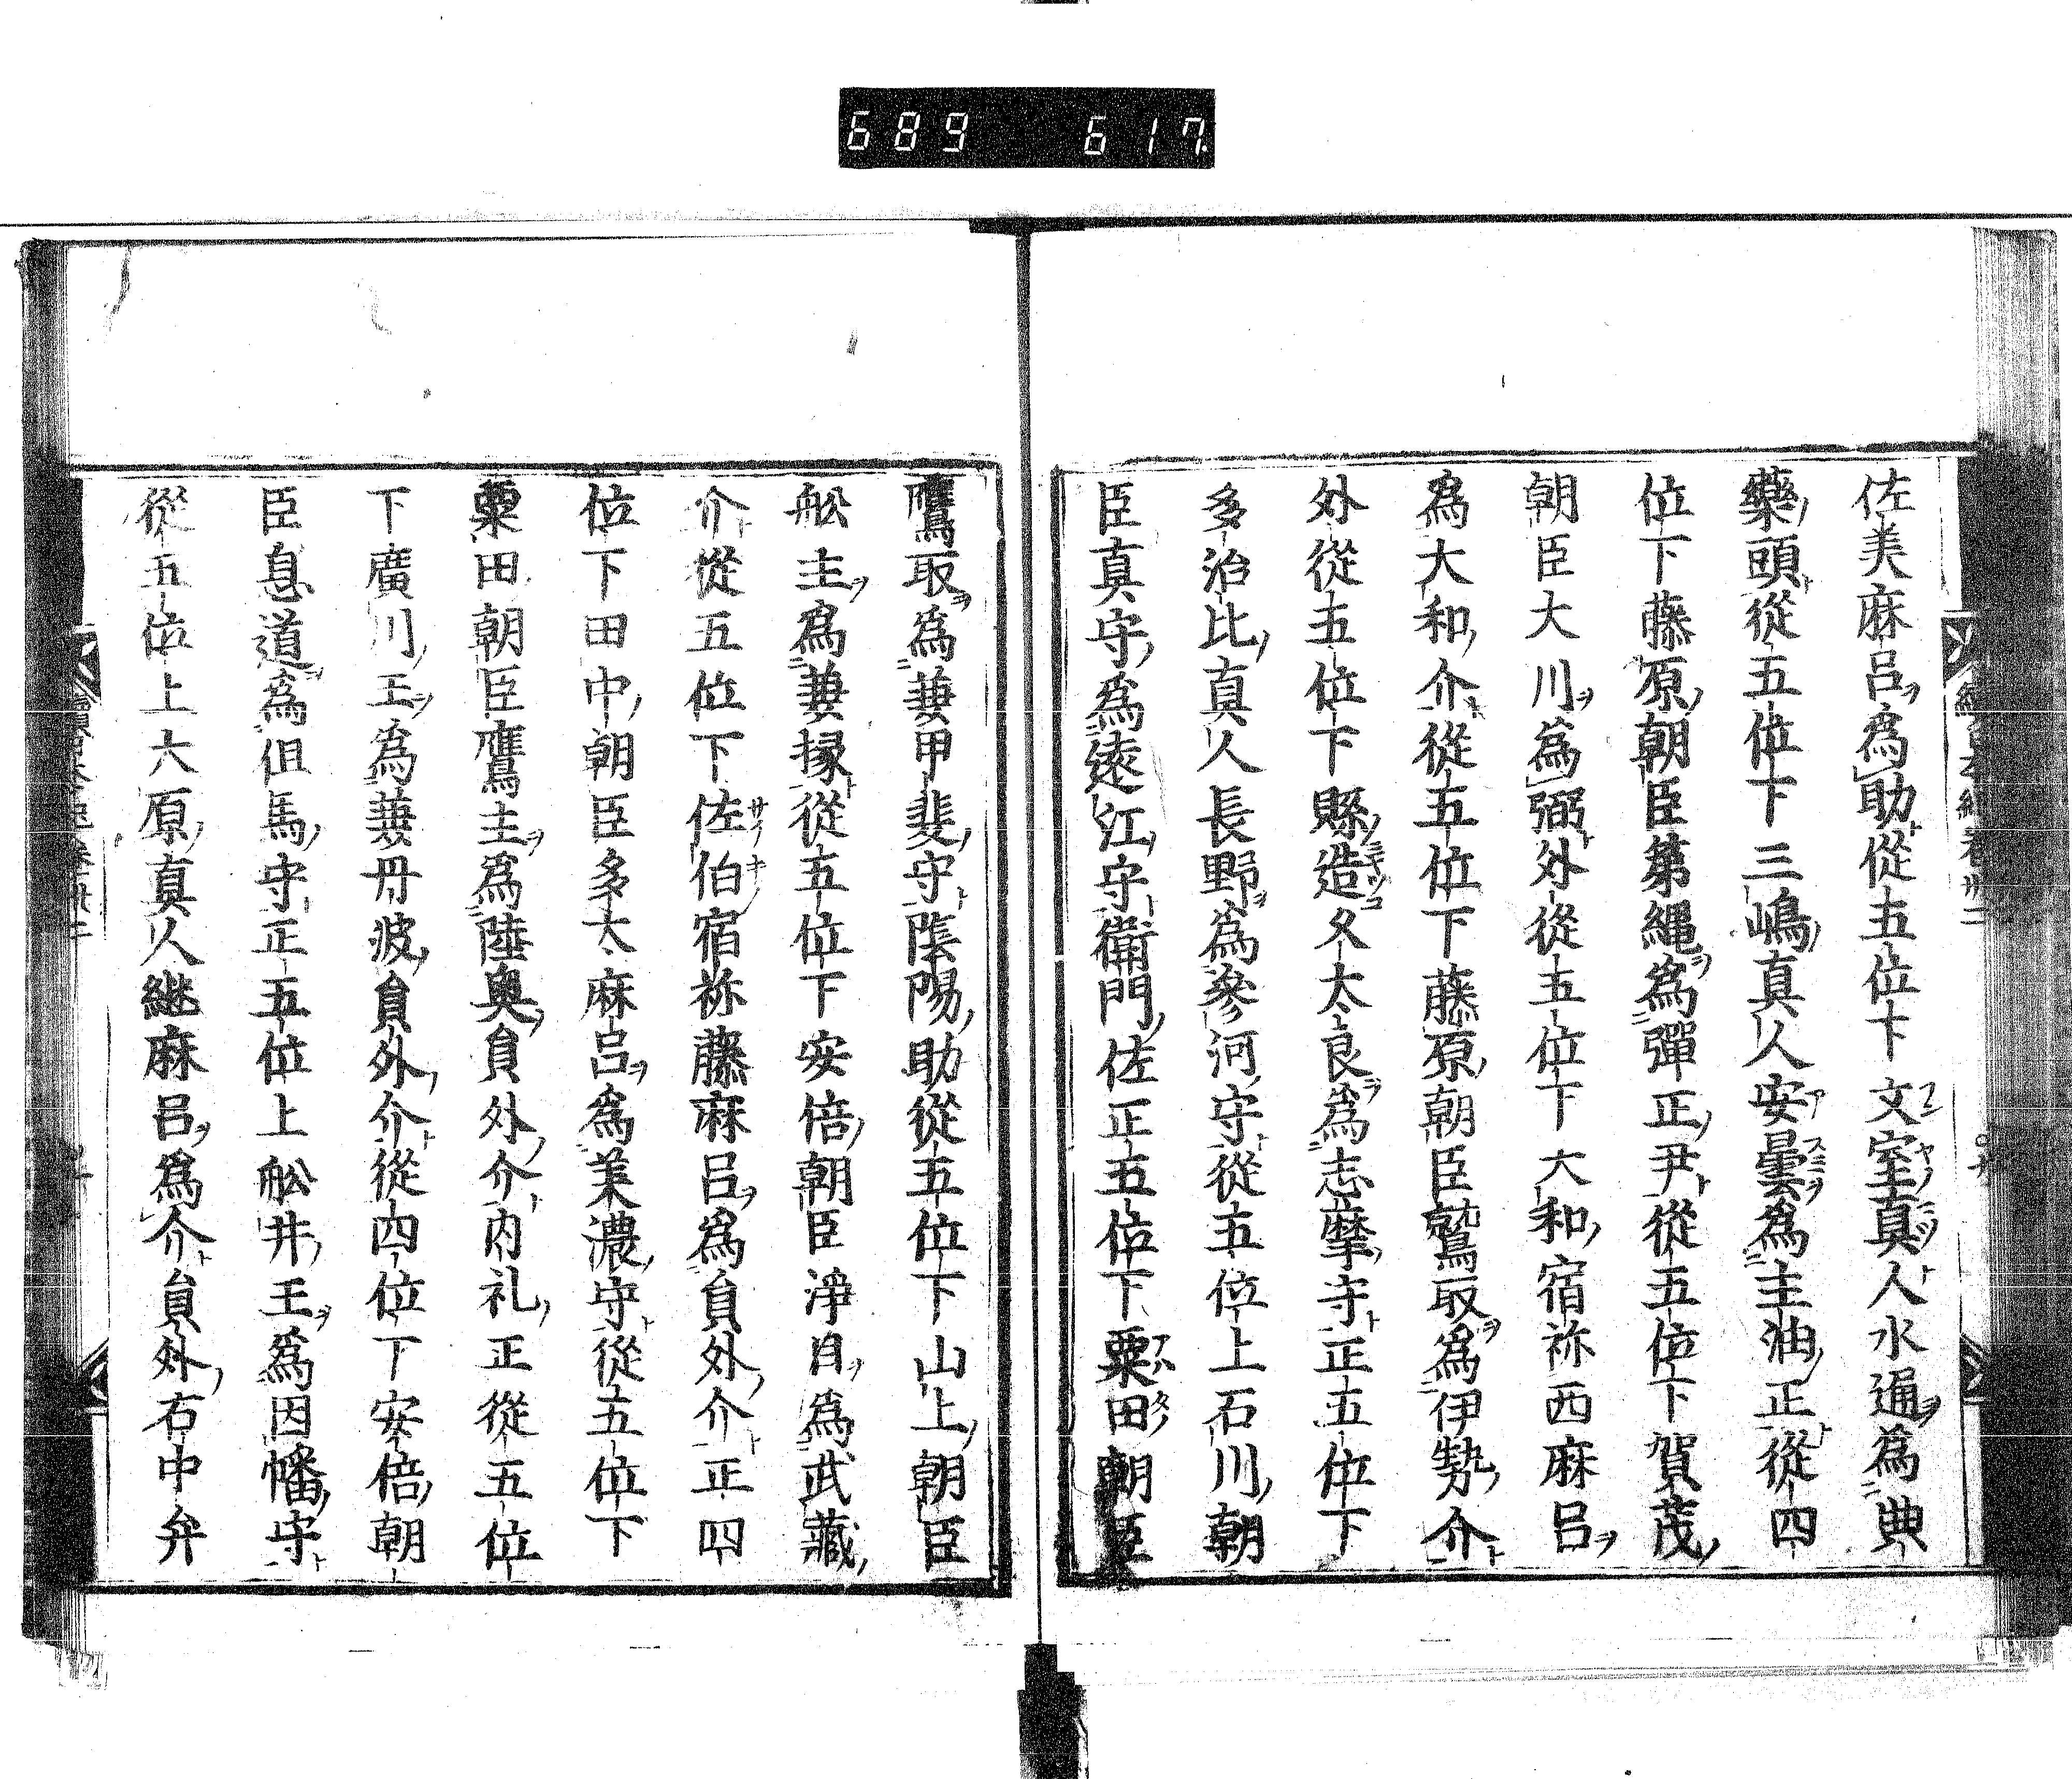 689 617
佐美麻呂爲助從五位下文室真人水通爲典
藥頭從五位下三嶋真人安曇爲主油正從四
位下藤原朝臣苐繩爲彈正尹從五位下賀茂
朝臣大川爲弼外從五位下大和宿祢西麻呂
爲大和介從五位下藤原朝臣鷲取爲伊勢介
外從五位下縣造久太良爲志摩守正五位下
多治比真人長野爲參河守從五位上石川朝
臣真守爲遠江守衛門佐正五位下粟田朝臣
鷹取爲兼甲斐守陰陽助從五位下山上朝臣
舩主爲兼掾從五位下安倍朝臣淨目爲武藏
介從五位下佐伯宿祢藤麻呂爲員外介正四
位下田中朝臣多太麻呂爲美濃守從五位下
粟田朝臣鷹主爲陸奧員外介内礼正從五位
下廣川王爲兼丹波員外介從四位下安倍朝
臣息道爲但馬守正五位上舩井王爲因幡守
從五位上大原真人継麻呂爲介員外右中弁